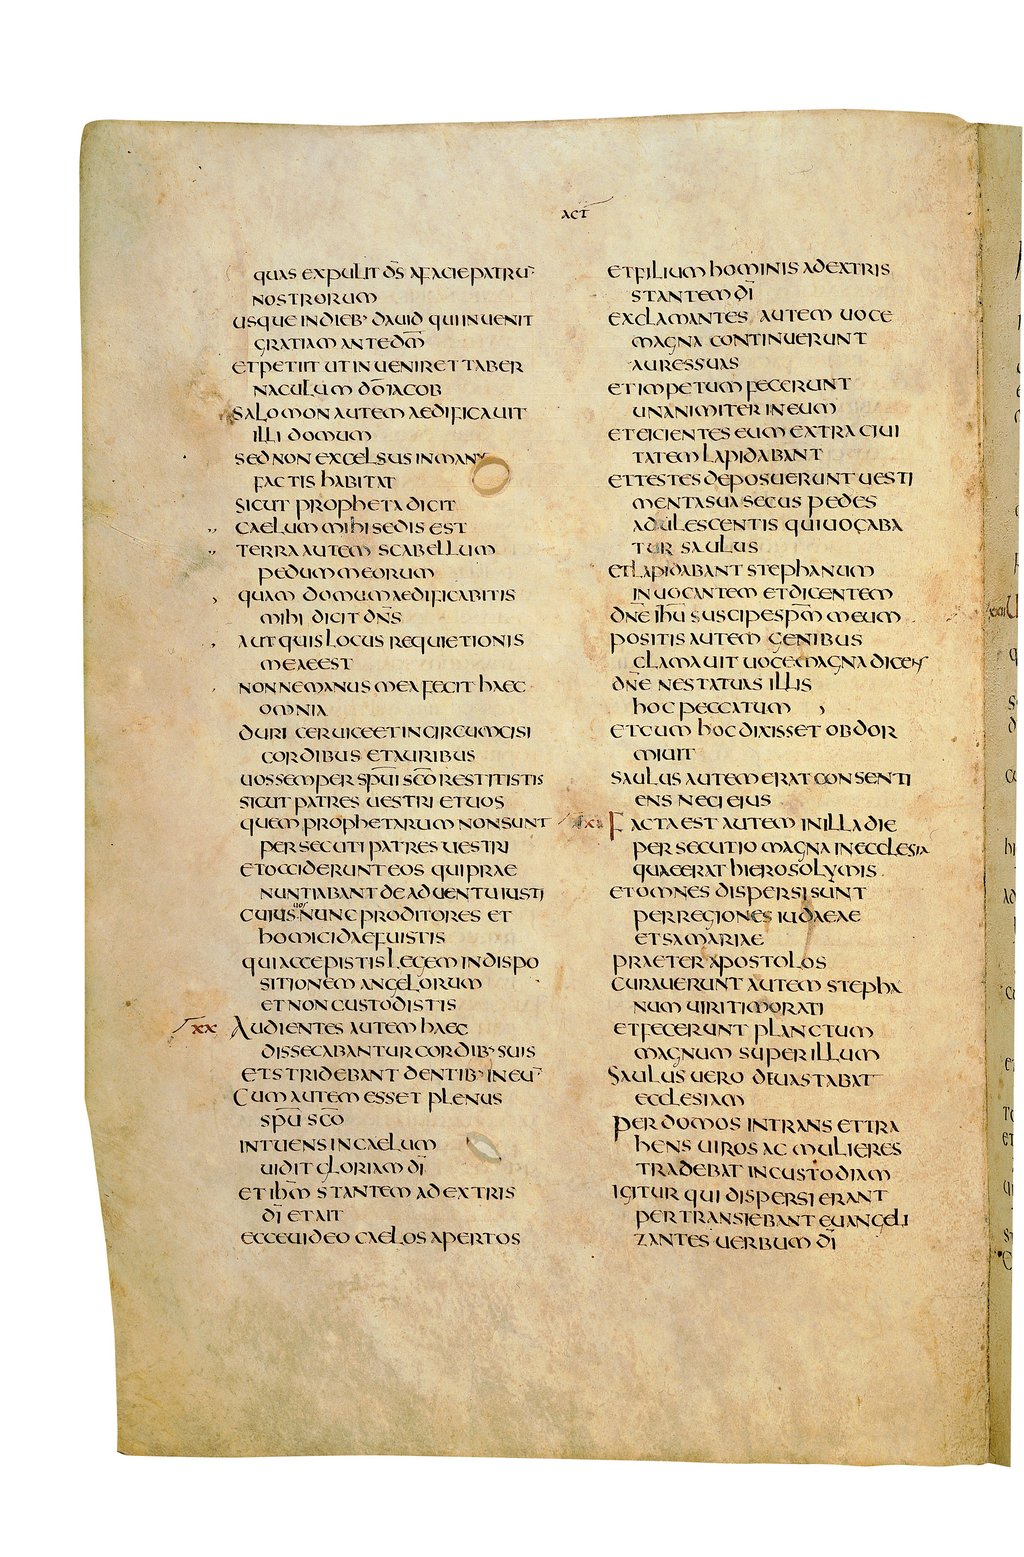 ACT
quas expulit d̄s a facie patru¯
nostrorum
usque in dieb· dauid qui inuenit
gratiam ante d̄m
et petiit ut inueniret taber
naculum d̄o iacob
Salomon autem aedificauit
illi domum
sed non excelsus in man
factis habitat
sicut propheta dicit
caelum mihi sedis est
terra autem scabellum
pedum meorum
quam domum aedificabitis
mihi dicit dn̄s
aut quis locus requietionis
meae est
nonne manus mea fecit haec
omnia
duri ceruice et incircumcisi
cordibus et auribus
uos semper sp̄ui sc̄o restitistis
sicut patres uestri et uos
quem prophetarum non sunt
persecuti patres uestri
et occiderunt eos qui prae
nuntiabant de aduentu iusti
cuius uos nunc proditores et
homicidae fuistis
qui accepistis legem in dispo
sitionem angelorum
et non custodistis
xx Audientes autem haec
dissecabantur cordib· suis
et stridebant dentib· in eu¯
Cum autem esset plenus
sp̄u sc̄o
intuens in caelum
uidit gloriam d̄i
et ih̄m stantem ad extris
d̄i et ait
ecce uideo caelos apertos
et filium hominis ad extris
stantem d̄i
exclamantes autem uoce
magna continuerunt
aures suas
et impetum fecerunt
unanimiter in eum
et eicientes eum extra ciui
tatem lapidabant
et testes deposuerunt uesti
menta sua secus pedes
adulescentis qui uocaba
tur saulus
et lapidabant stephanum
inuocantem et dicentem
dn̄e ih̄u suscipe sp̄m meum
positis autem genibus
clamauit uoce magna dicens
dn̄e ne statuas illis
hoc peccatum
et cum hoc dixisset obdor
miuit
saulus autem erat consenti
ens neci eius
Facta est autem in illa die
persecutio magna in ecclesia
quae erat hierosolymis
et omnes dispersi sunt
per regiones iudaeae
et samariae
praeter apostolos
curauerunt autem stepha
num uiri timorati
et fecerunt planctum
magnum super illum
Saulus uero deuastabat
ecclesiam
per domos intrans et tra
hens uiros ac mulieres
tradebat in custodiam
igitur qui dispersi erant
pertransiebant euangeli
zantes uerbum d̄i